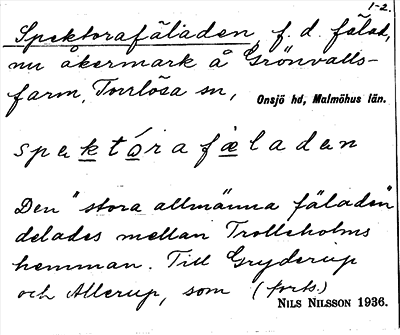 1-2.
Spektorafäladen, f. d. fälad,
nu åkermark å Grönvalls-
farm, Torrlösa sn, Onsjö hd, Malmöhus län.
spektórafæladen
Den "stora allmänna fäladen"
delades mellan Trolleholms
hemman. Till Gryderup
och Allerup, som (forts.)
NILS NILSSON 1936.